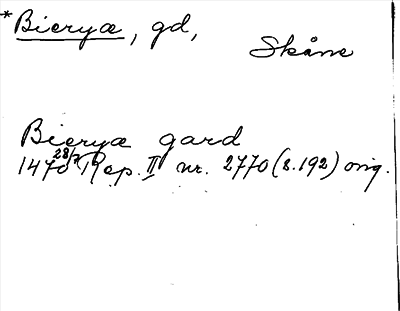 *Bieryæ, gd,
Skåne
Bieryæ gard
1470 28/7 Rep. II nr. 2770 (s. 192) orig.